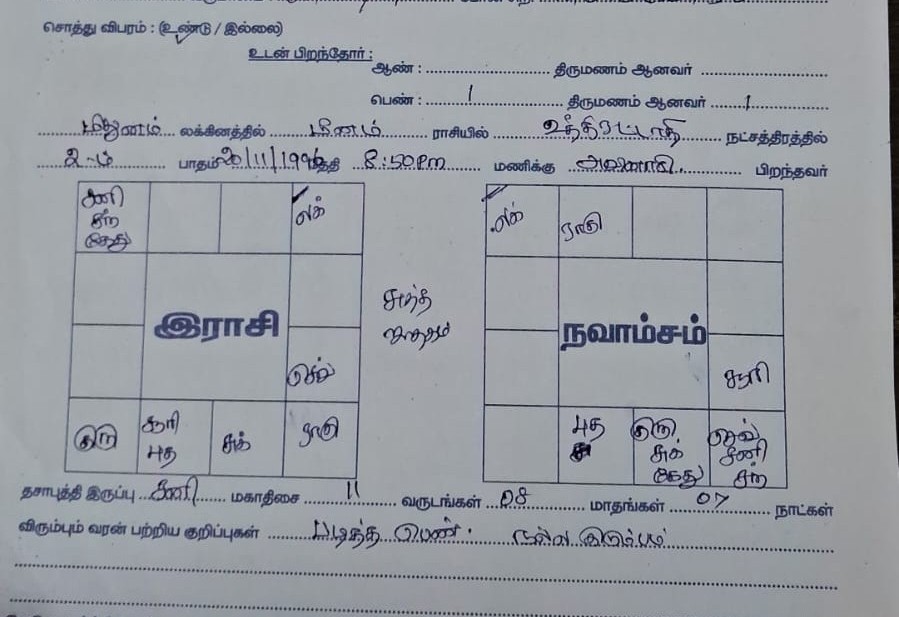 சொத்து விபரம் : (உண்டு / இல்லை)
உடன் பிறந்தோர் :
ஆண் : திருமணம் ஆனவர்
பெண் : 1 திருமணம் ஆனவர் 1
மிதுனம் லக்கினத்தில் மீனம் ராசியில் உத்திரட்டாதி நட்சத்திரத்தில்
2-ம் பாதம் 20/11/1996 தேதி 8:50 Pm மணிக்கு பிறந்தவர்
சனி
சந்
கேது
லக்
லக்
ராகு
இராசி
சுத்த
ஜாதகம்
நவாம்சம்
செவ்
சூரி
குரு
சூரி
புத
சுக்
ராகு
புத
குரு
சுக்
கேது
செவ்
சனி
சந்
தசாபுத்தி இருப்பு சனி மகாதிசை 11 வருடங்கள் 08 மாதங்கள் 07 நாட்கள்
விரும்பும் வரன் பற்றிய குறிப்புகள் படித்த பெண். நல்ல குடும்பம்